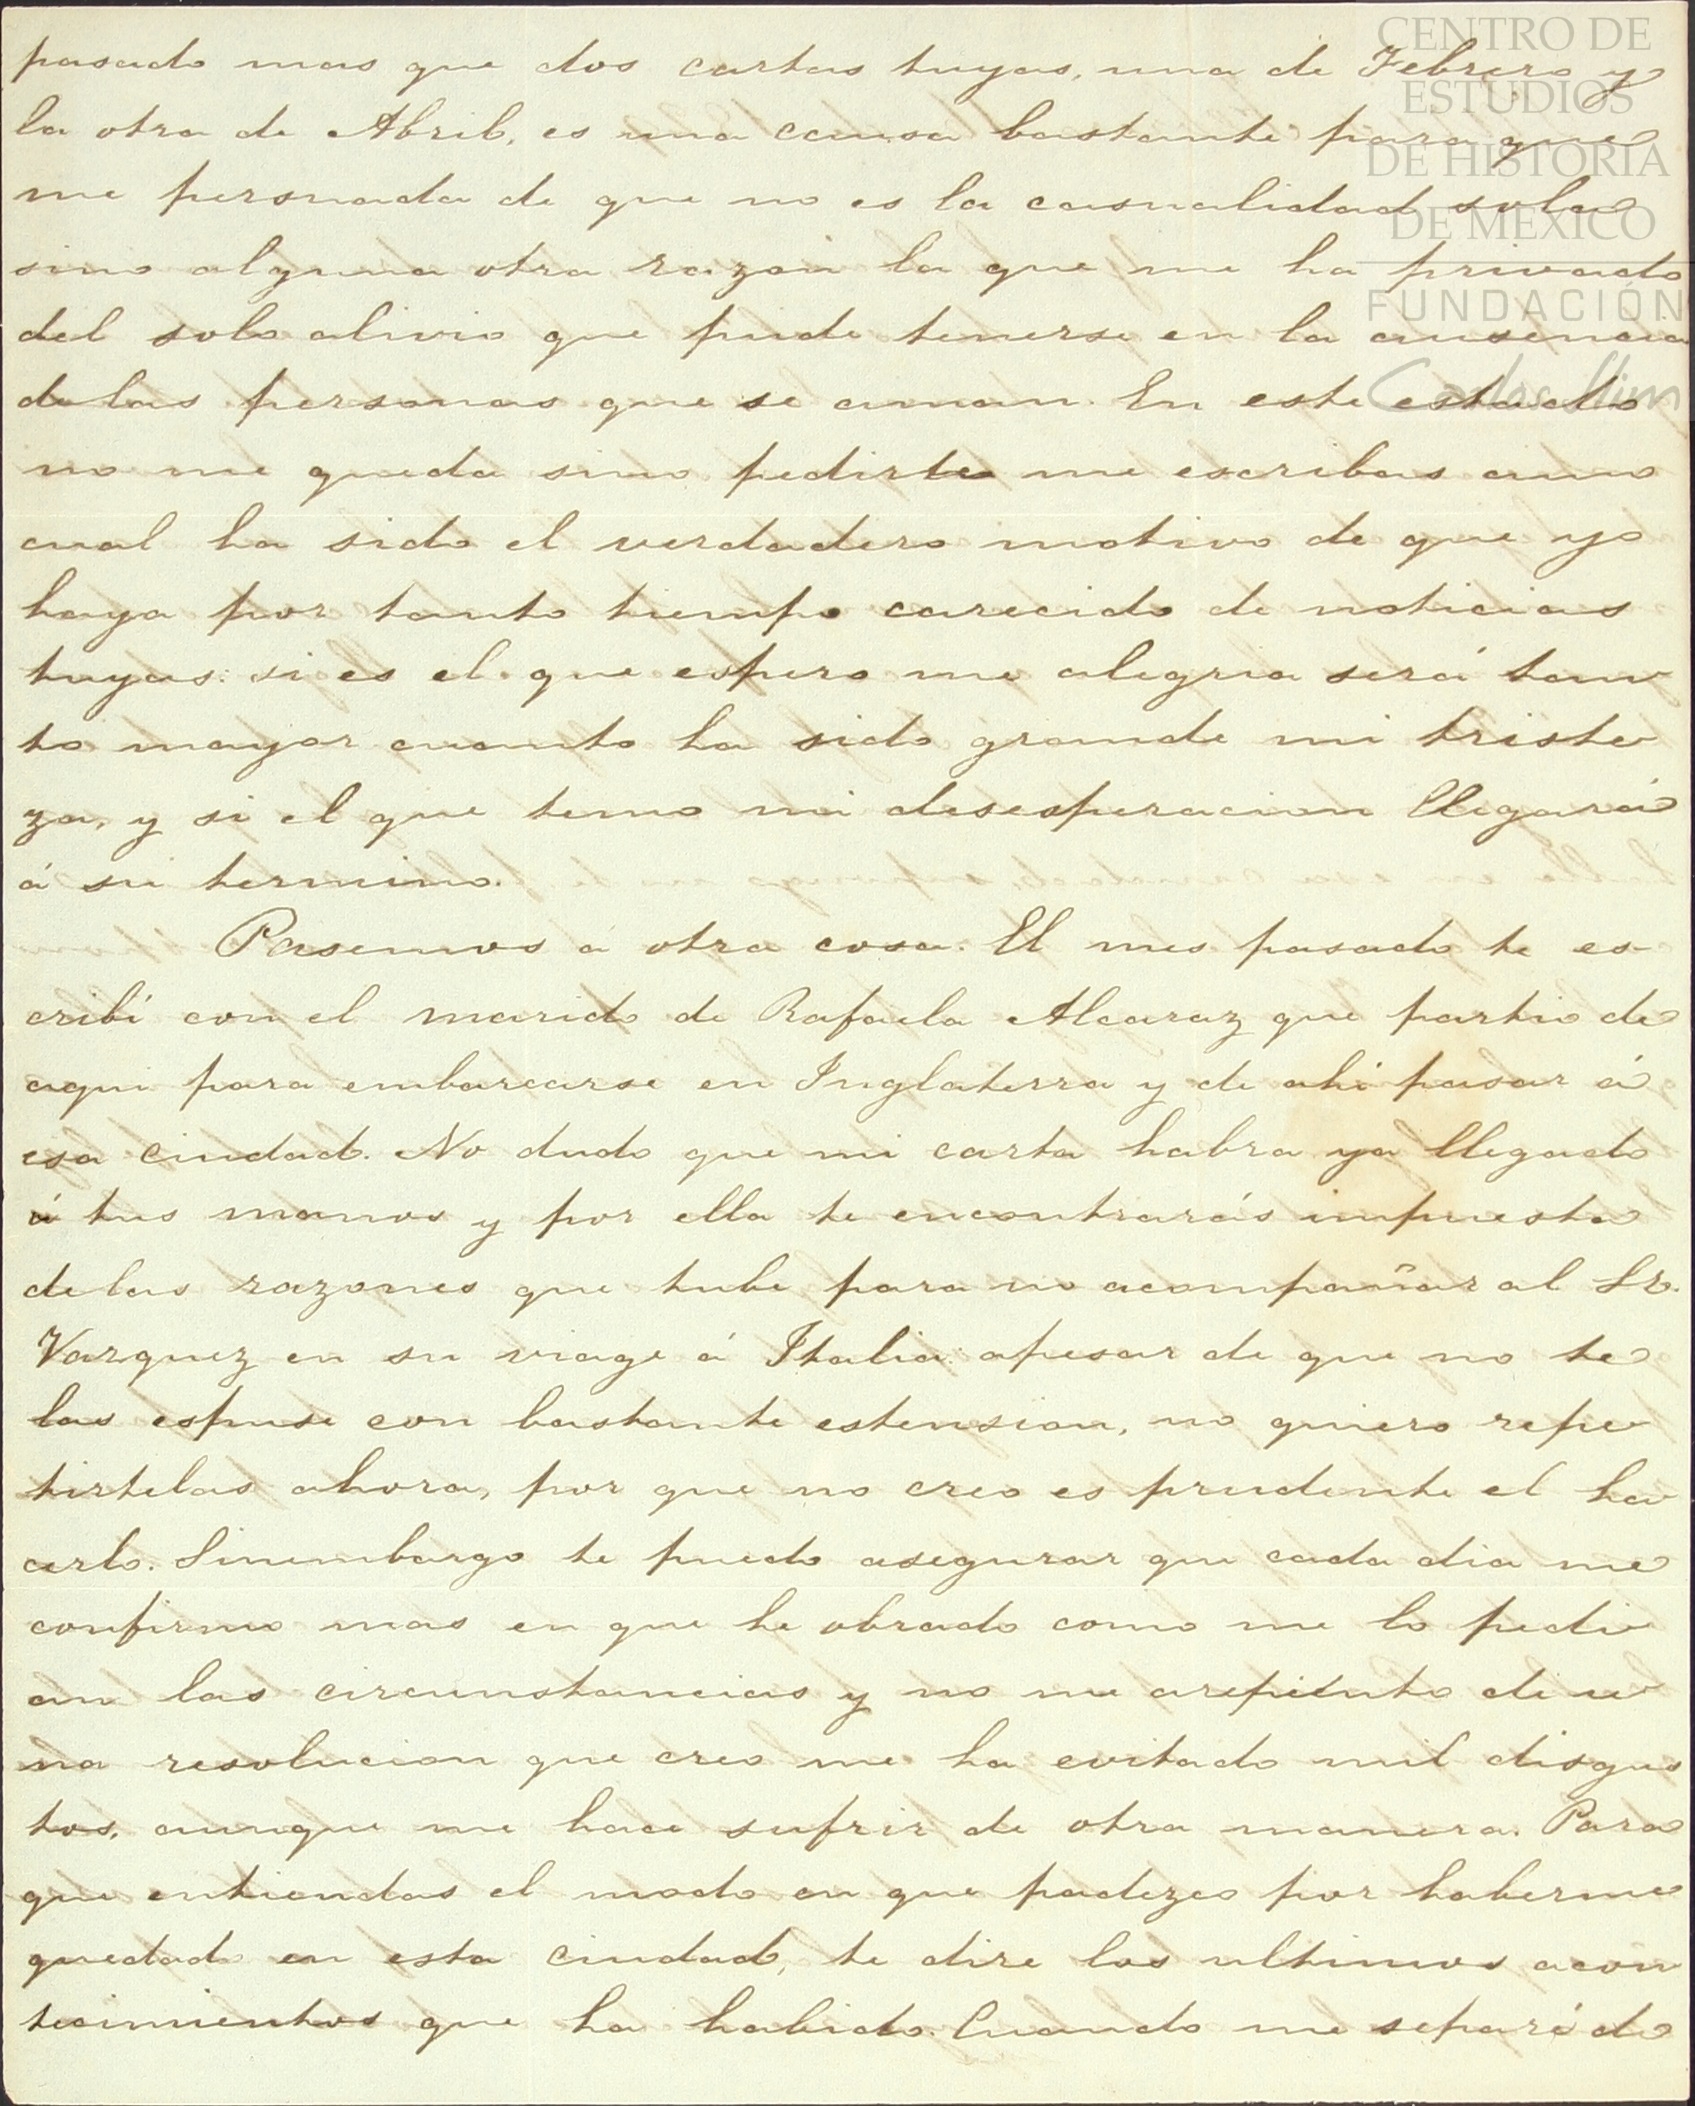 CENTRO DE
ESTUDIOS
DE HISTORIA
DE MEXICO
FUNDACIÓN
Carlos Slim
pasado mas que dos cartas tuyas, una de Febrero y
la otra de Abril, es una causa bastante para que
me persuada de que no es la casualidad sola
sino alguna otra razon la que me ha privado
del solo alivio que pude tenerse en la ausencia
de las personas que se aman. En este estado
no me queda sino pedirte me escribas
cual ha sido el verdadero motivo de que yo
haya por tanto tiempo carecido de noticias
tuyas: si es el que espero me alegria será tan
to mayor cuanto ha sido grande mi triste
za, y si el que temo mi desesperacion llegará
á su termino.
Pasemos a otra cosa. El mes pasado te es-
cribí con el marido de Rafaela Alcaraz que partio de
aqui para embarcarse en Inglaterra y de ahi pasar á
esa ciudad. No dudo que mi carta habra ya llegado
á tus manos y por ella te encontrarás impuesto
de las razones que tube para no acompañar al Sr.
Vazquez en su viage á Italia: apesar de que no te
las espuse con bastante estension, no quiero repe
tirtelas ahora, por que no creo es prudente el ha
cerlo. Sinembargo te puedo asegurar que cada dia me
confirmo mas en que he obrado como me lo pedi
an las circunstancias y no me arepiento de u
na resolucion que creo me ha evitado mil disgus
tos, aunque me hace sufrir de otra manera. Para
que entiendas el modo en que padezco por haberme
quedado en esta ciudad, te dire los ultimos acon
tecimientos que ha habido. Cuando me separé de